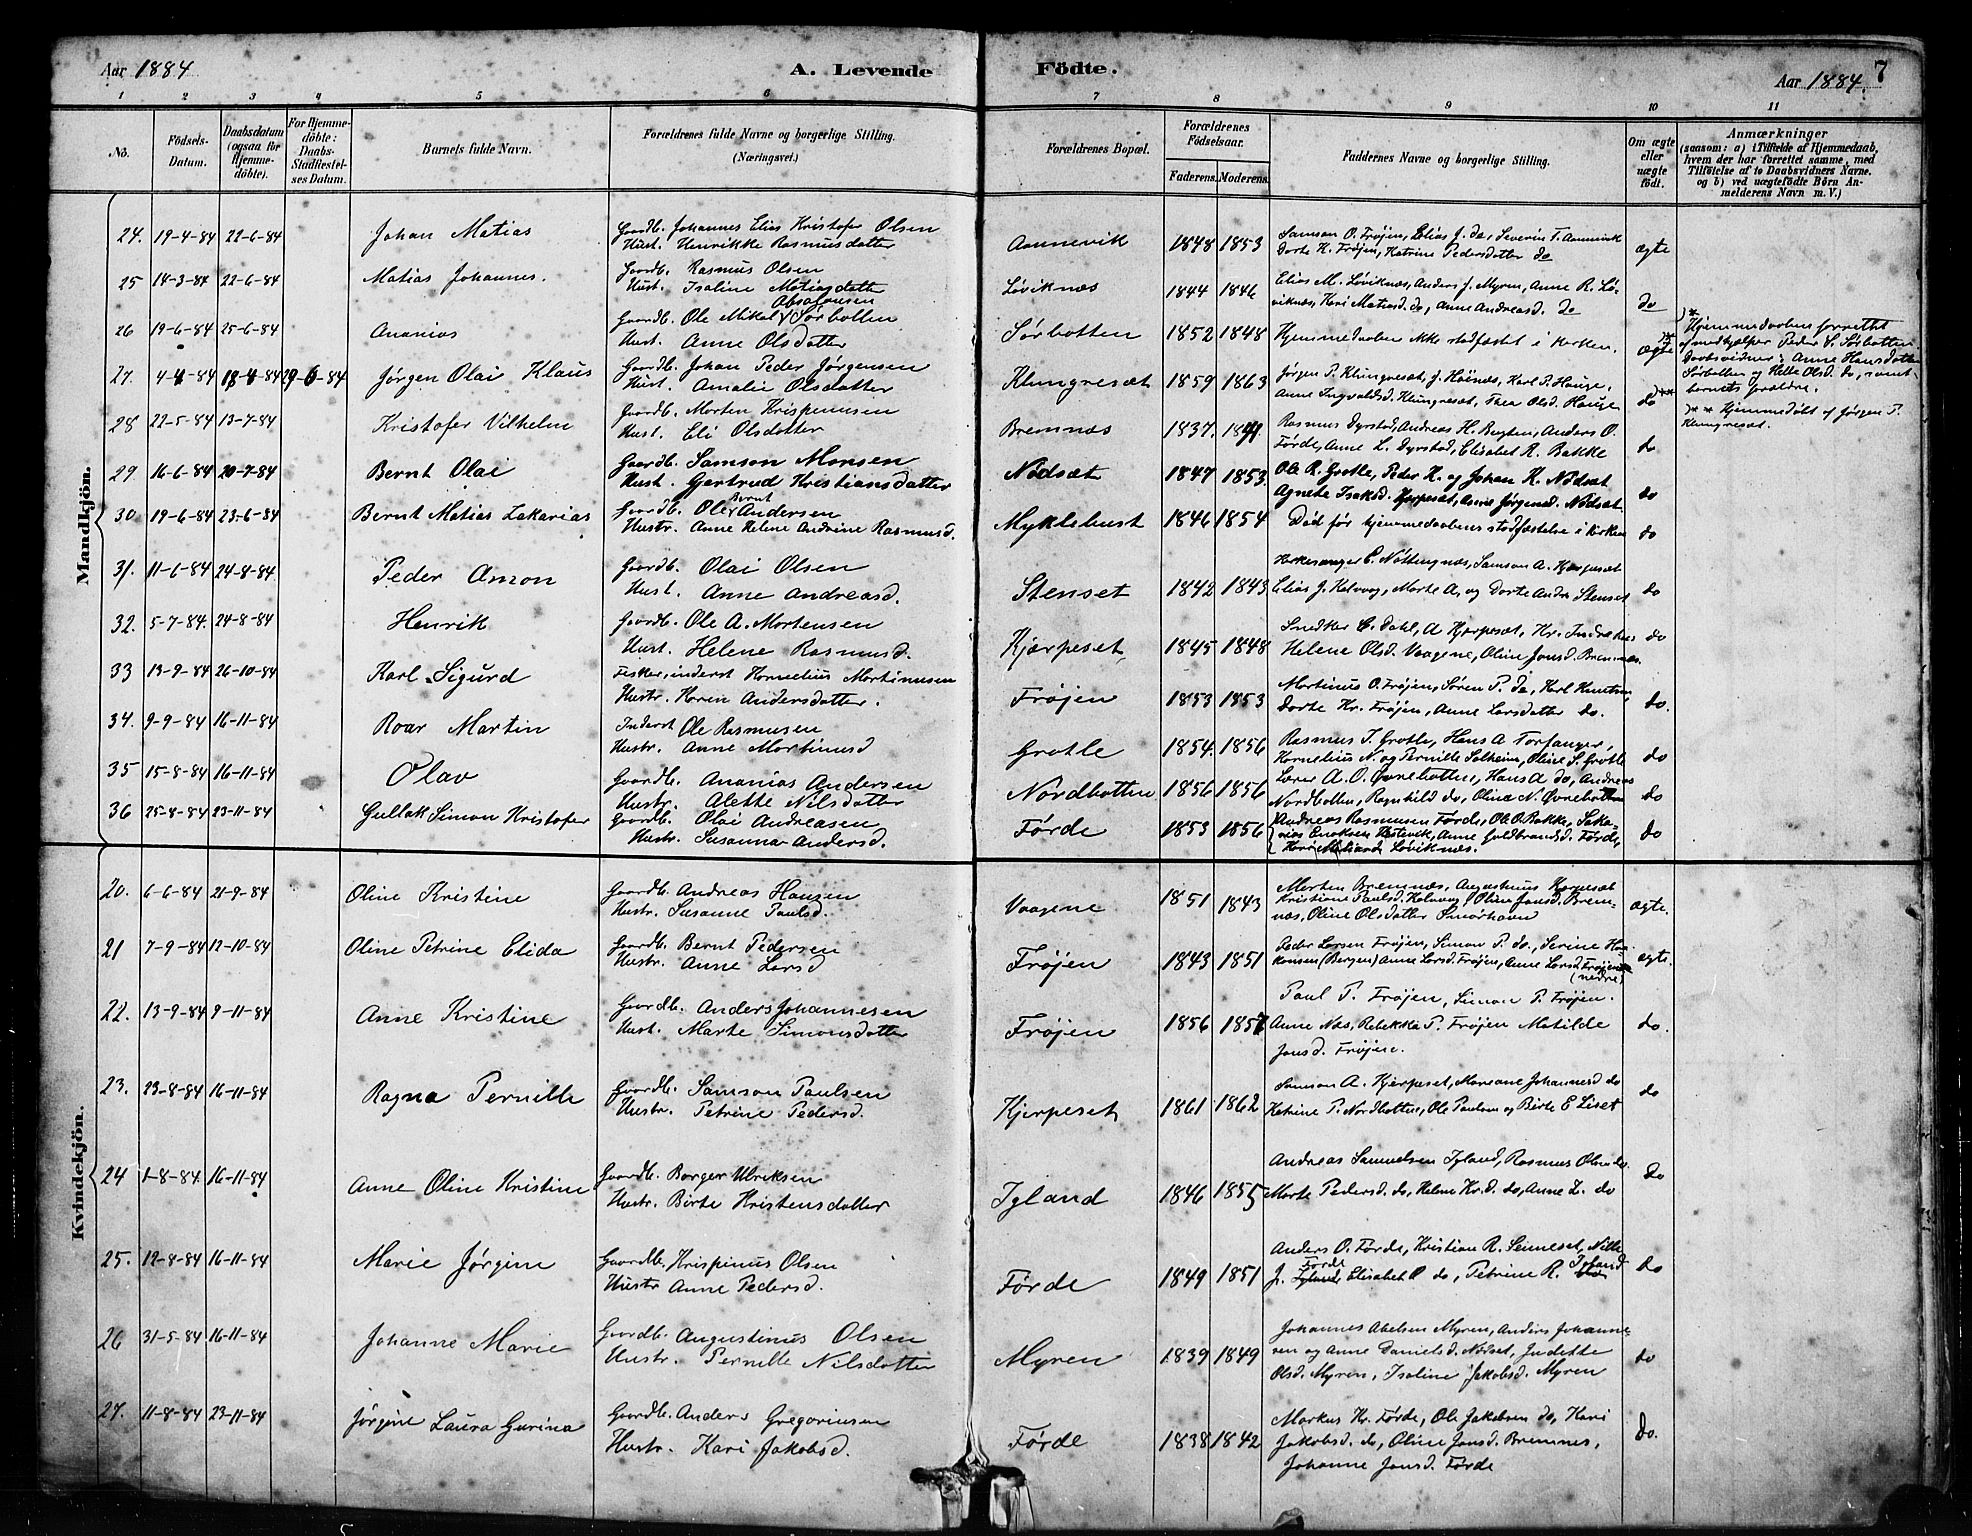 Aar 1884 A. Levende Födte. Aar 1884. 7
1 2 3 4 5 6 7 8 9 10 11
No. Födsels-Datum. Daabsdatum (ogsaa for Hjemme-döbte). For Hjemme-döbte: Daabs-Stadfæstel-ses Datum. Barnets fulde Navn. Forældrenes fulde Navne og borgerlige Stilling. (Næringsvei.) Forældrenes Bopæl. Forældrenes Födselsaar. Faderens. Moderens. Faddernes Navne og borgerlige Stilling. Om ægte eller uægte födt. Anmærkninger (saasom: a) i Tilfælde af Hjemmedaab, hvem der har forrettet samme, med Tilföielse af to Daabsvidners Navne. og b) ved uægtefödte Börn An-melderens Navn m. V.)
Mandkjön.
24. 19-4-84 22-6-84 Johan Matias Gaardb. Johannes Elias Kristofer Olsen
Hust. Henrikke Rasmusdatter Aannevik 1848 1853 Samson O. Frøjen, Elias J. do, Severin T. Aannevik
Dorte K. Frøjen, Katrine Pedersdatter do ægte
25 14-3-84 22-6-84 Matias Johannes. Gaardb. Rasmus Olsen
Hust. Isaline Matiasdatter Løviknæs 1844 1846 Elias M. Løviknæs, Anders J. Myren, Anne R. Lø-
viknæs, Kari Matiasd. do, Anne Andreasd. do do
26 19-6-84 25-6-84 Ananias Gaardb. Ole Mikal Absalonsen Sørbotten
Hust. Anne Olsdatter Sørbotten 1852 1848 Hjemmedaaben ikke stadfæstet i kirken. ægte
Hjemmedaaben forrettet
af medhjælper Peder S. Sørbotten
Daabsvidner: Anne Hansdatter
Sørbotten og Helle Olsd. do, samt
barnets forældre.
27. 4-4-84 18-4-84 29-6-84 Jørgen Olai Klaus Gaardb. Johan Peder Jørgensen
Hust. Amalie Olsdatter Klungresæt 1859 1863 Jørgen P. Klungresæt, J. Høinæs, Karl P. Hauge,
Anne Ingvaldsd. Klungresæt, Thea Olsd. Hauge do
** Hjemmedøbt af Jørgen P.
Klungresæt.
28 22-5-84 13-7-84 Kristofer Vilhelm Gaardb. Morten Krispinusen
Hust. Eli Olsdatter Bremnæs 1837. 1841 Rasmus Dyrstad, Andreas H. Rugten, Anders O.
Førde, Anne L. Dyrstad, Elisabet R. Bakke do
29 16-6-84 20-7-84 Bernt Olai Gaardb. Samson Monsen
Hust. Gjertrud Kristiansdatter Nødsæt 1847 1853. Ole R. Grotle, Peder K. og Johan K. Nødsæt
Agnete Isaksd. Kjerpesæt, Anne Jørgensd. Nødsæt. do
30 19-6-84 23-6-84 Bernt Matias Zakarias Gaardb. Ole Bernt Andersen
Hustr. Anne Helene Andrine Rasmusd. Myklebust 1846 1854 Død før hjemmedaabens stadfæstelse i kirken do
31. 11-6-84 24-8-84 Peder Amon Gaardb. Olai Olsen
Hust. Anne Andreasd. Stenset 1842 1843 Kirkesanger C. Nøttingnæs, Samson A. Kjerpesæt
Elias J. Kalvvag, Marte A. og Dorte Andr. Stenset do
32. 5-7-84. 24-8-84 Henrik Gaardb. Ole A. Mortensen
Hust. Helene Rasmusd. Kjærpeset, 1845 1848 Snedker C. Dahl, A Kjerpesæt, Kr. Indrehus
Helene Olsd. Vaagene, Oline Jonsd. Bremnæs. do
33 13-9-84 26-10-84 Karl Sigurd Fisker, inderst Kornelius Mortinusen
Hustr. Karen Andersdatter. Frøjen 1853 1853 Martinus O. Frøjen, Søren P. do, Karl Knutsen,
Dorte Kr. Frøjen, Anne Larsdatter do. do.
34. 9-9-84 16-11-84 Roar Martin Inderst Ole Rasmusen
Hustr. Anne Mortinusd Grotle 1854. 1856 Rasmus T. Grotle, Hans A Torfanger,
Kornelius N. og Pernille Solheim, Oline S. Grotle do
35 15-8-84 16-11-84 Olav Gaardb. Ananias Andersen
Hustr. Alette Nilsdatter Nordbotten 1856 1856 Lærer A. O. Øvrebotten, Hans A do, Andreas
Nordbotten, Ragnhild do, Oline N. Øvrebotten do
36 25-8-84 23-11-84 Gullak Simon Kristofer Gaardb. Olai Andreasen
Hustr. Susanna Andersd. Førde 1853 1856 Andreas Rasmusen Førde, Ole O. Bakke, Saka-
rias Enoksen Hatevik, Anne Guldbrandsd. Førde,
Kari Matiasd Løviknæs. do
Kvindekjön.
20. 6-6-84 21-9-84 Oline Kristine Gaardb. Andreas Hansen
Hustr. Susanne Paulsd. Vaagene 1851 1843 Morten Bremnæs, Augustinus Kjerpesæt
Kristiane Paulsd. Kalvvag, Oline Jonsd. Brem-
næs, Oline Olsdatter Smørhavn ægte.
21 7-9-84 12-10-84 Oline Petrine Elida Gaardb. Bernt Pedersen
Hustr. Anne Larsd Frøjen 1843 1851 Peder Larsen Frøjen, Simon P. do, Serine Haa-
konsen (Bergen) Anne Larsd. Frøjen, Anne Larsd. Frøjen
(nedre) ægte.
22. 13-9-84 9-11-84 Anne Kristine Gaardb. Anders Johannesen
Hust. Marte Simonsdatter Frøjen 1856 1857 Paul P. Frøjen, Simon P. Frøjen.
Anne Næs, Rebekka P. Frøjen Matilde
Jonsd. Frøjen. do.
23. 23-8-84 16-11-84 Ragna Pernille Gaardb. Samson Paulsen
Hustr. Petrine Pedersd. Kjerpeset 1861 1862 Samson A. Kjerpeset, Mariane Johannesd do
Katrine P. Nordbotten, Ole Paulsen og Birte E Liset do
24 1-8-84. 16-11-84 Anne Oline Kristine Gaardb. Borger Ulriksen
Hustr. Birte Kristensdatter Igland 1846 1855 Andreas Samuelsen Igland, Rasmus Olsen do.
Marte Pedersd. do, Helene Kr.d. do, Anne L. do do
25. 12-8-84 16-11-84 Marie Jørgine Gaardb. Krispinus Olsen
Hustr Anne Pedersd. Førde 1849 1851 Anders O. Førde, Kristian R. Seimeset, Nille
J. Igland Førde, Elisabet O do, Petrine R. Igland do
26 31-5-84 16-11-84 Johanne Marie Gaardb. Augustinus Olsen
Hustr. Pernille Nilsdatter Myren 1839 1849 Johannes Abelsen Myren, Anders Johanne-
sen og Anne Danielsd. Nødset, Judette
Olsd. Myren, Isaline Jakobsd. Myren do
27. 11-8-84 23-11-84 Jørgine Laura Gurina Gaardb. Anders Gregoriusen
Hustr. Kari Jakobsd. Førde 1838 1842 Markus Kr. Førde, Ole Jakobsen do, Kari
Jakobsd. do, Oline Jonsd. Bremnes,
Johanne Jonsd. Førde do.